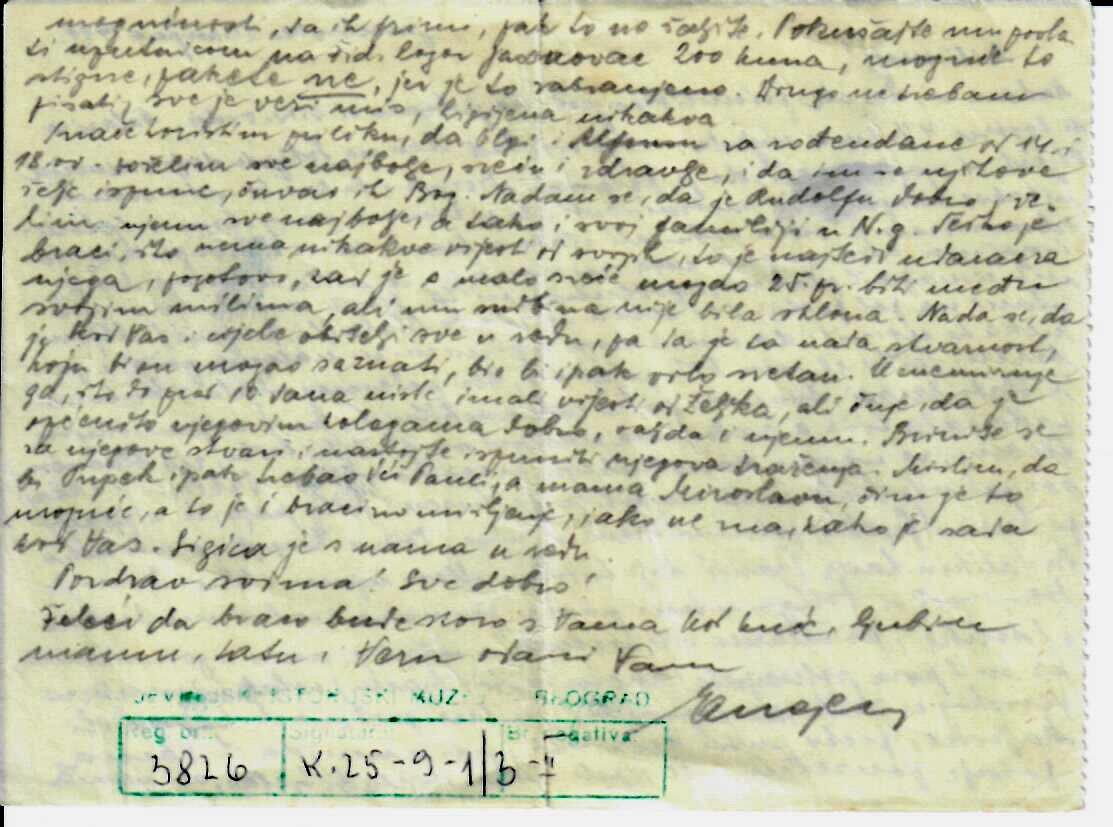 mogućnosti, da ih primi, pak to ne šaljite. Pokušajte mu posla
ti uputnicom na žid. logor Jasenovac 200 kuna, moguće to
stigne, pakete ne, jer je to zabranjeno. Drugo ne trebam
pisati, sve je veši mis, higijena nikakva.
Inače koristim priliku, da Elzi i Alfonsu za rođendane od 14. i
18. ov. zaželim sve najbolje, sreću i zdravlje, i da im se njihove
želje ispune, čuvao ih Bog. Nadam se, da je Rudolfu dobro, že-
lim njemu sve najbolje, a tako i svoj familiji u N.g. Teško je
braci, što nema nikakve vijesti od svojih, to je najteži udarac za
njega, pogotovo, kad je s malo sreće mogao 25. pr. biti među
svojim milima, ali mu sudbina nije bila sklona. Nada se, da
je kod Vas i cijele obitelji sve u redu, pa da je ta nada stvarnost,
koju bi on mogao saznati, bio bi ipak vrlo sretan. Uznemiruje
ga, što do pred 10 dana niste imali vijesti od Željka, ali čuje, da je
općenito njegovim kolegama dobro, valjda i njemu. Brinite se
za njegove stvari i nastojte ispuniti njegova traženja. Mislim, da
bi Pupek ipak trebao ići Pauli, a mama Miroslavu, čim je to
moguće, a to je i bracino mišljenje, iako ne zna, kako je sada
kod Vas. Gigica je s nama u redu.
Pozdrav svima! Sve dobro!
Želeći da braco bude skoro s Vama kod kuće, ljubim
mamu, tatu i Veru odani Vam
JEVREJSKI ISTORIJSKI MUZEJ BEOGRAD
Reg. br. Signatura: Br. negativa:
3826 K.25-9-1/3-II